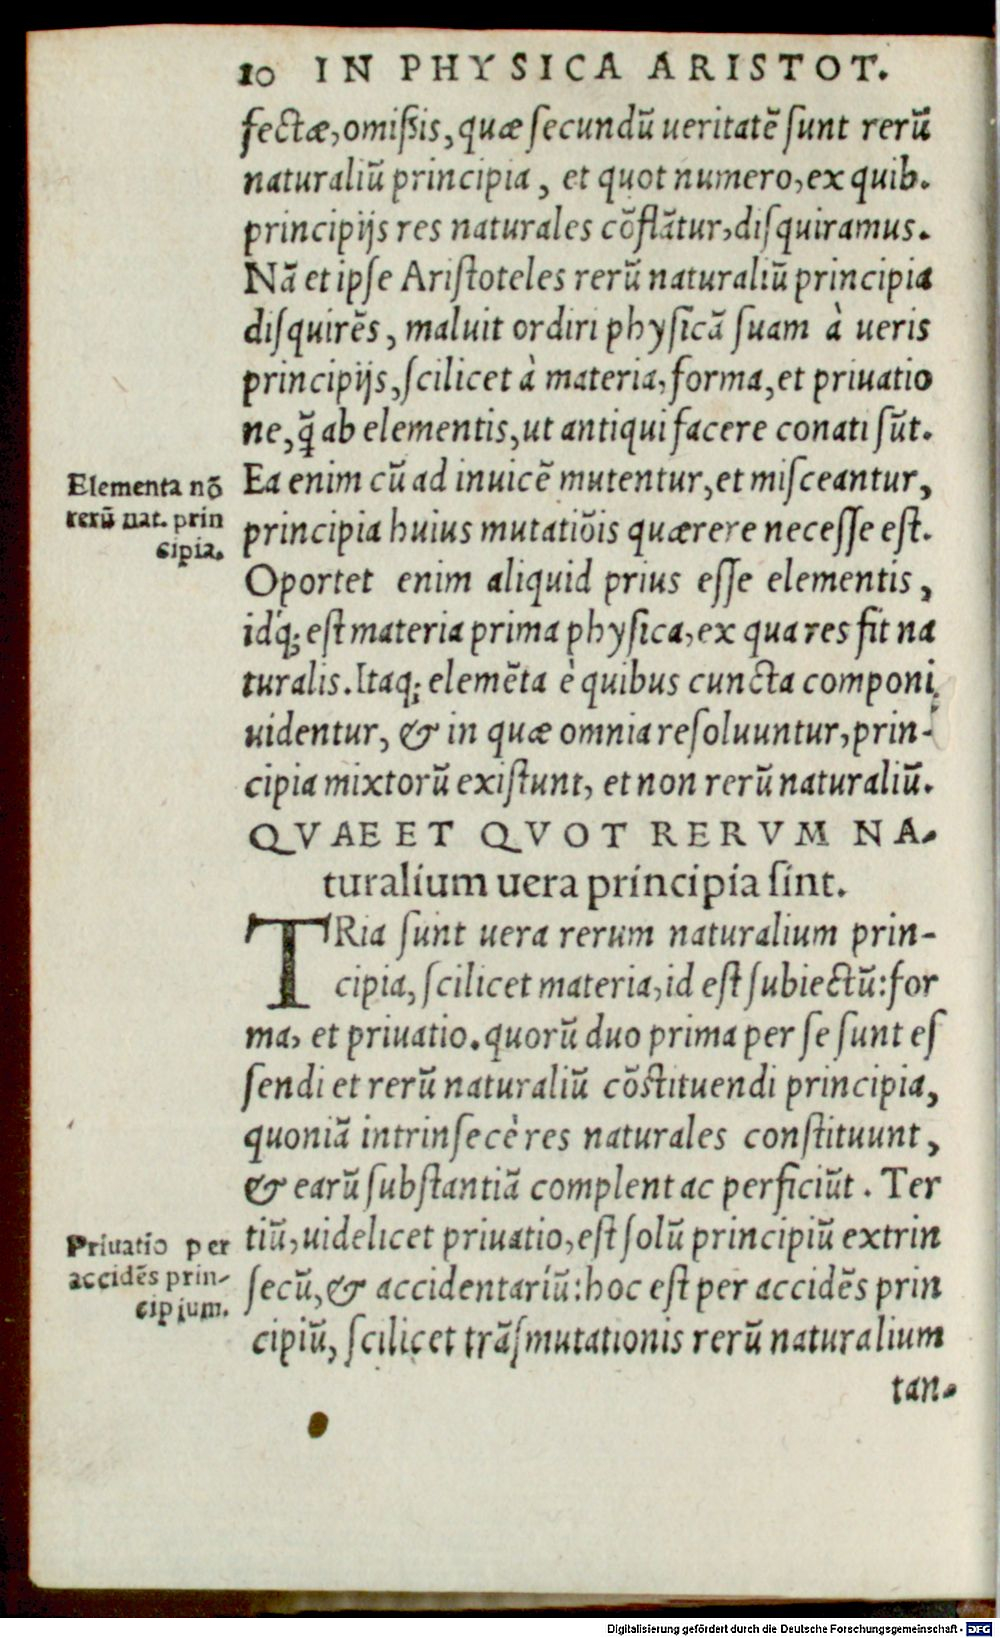 10 IN PHYSICA ARISTOT.
fectæ, omißis, quæ ſecundũ ueritatẽ ſunt rerũ
naturaliũ principia, et quot numero, ex quib.
principijs res naturales cõflãtur, diſquiramus.
Nã et ipſe Ariſtoteles rerũ naturaliũ principia
diſquirẽs, maluit ordiri phyſicã ſuam à ueris
principijs, ſcilicet à materia, forma, et priuatio
ne, q̃ ab elementis, ut antiqui facere conati ſũt.
Elementa nõ
rerũ nat. prin
cipia.
Ea enim cũ ad inuicẽ mutentur, et miſceantur,
principia huius mutatiõis quærere neceſſe eſt.
Oportet enim aliquid prius eſſe elementis,
idq́; eſt materia prima phyſica, ex qua res fit na
turalis. Itaq; elemẽta è quibus cuncta componi
uidentur, & in quæ omnia reſoluuntur, prin-
cipia mixtorũ exiſtunt, et non rerũ naturaliũ.
QVAE ET QVOT RERVM NA-
turalium uera principia ſint.
TRia ſunt uera rerum naturalium prin-
cipia, ſcilicet materia, id eſt ſubiectũ: for
ma, et priuatio. quorũ duo prima per ſe ſunt eſ
ſendi et rerũ naturaliũ cõſtituendi principia,
quoniã intrinſecè res naturales conſtituunt,
& earũ ſubſtantiã complent ac perficiũt. Ter
Priuatio per
accidẽs prin-
cipium.
tiũ, uidelicet priuatio, eſt ſolũ principiũ extrin
ſecũ, & accidentariũ: hoc eſt per accidẽs prin
cipiũ, ſcilicet trãſmutationis rerũ naturalium
tan-
Digitalisierung gefördert durch die Deutsche Forschungsgemeinschaft - DFG